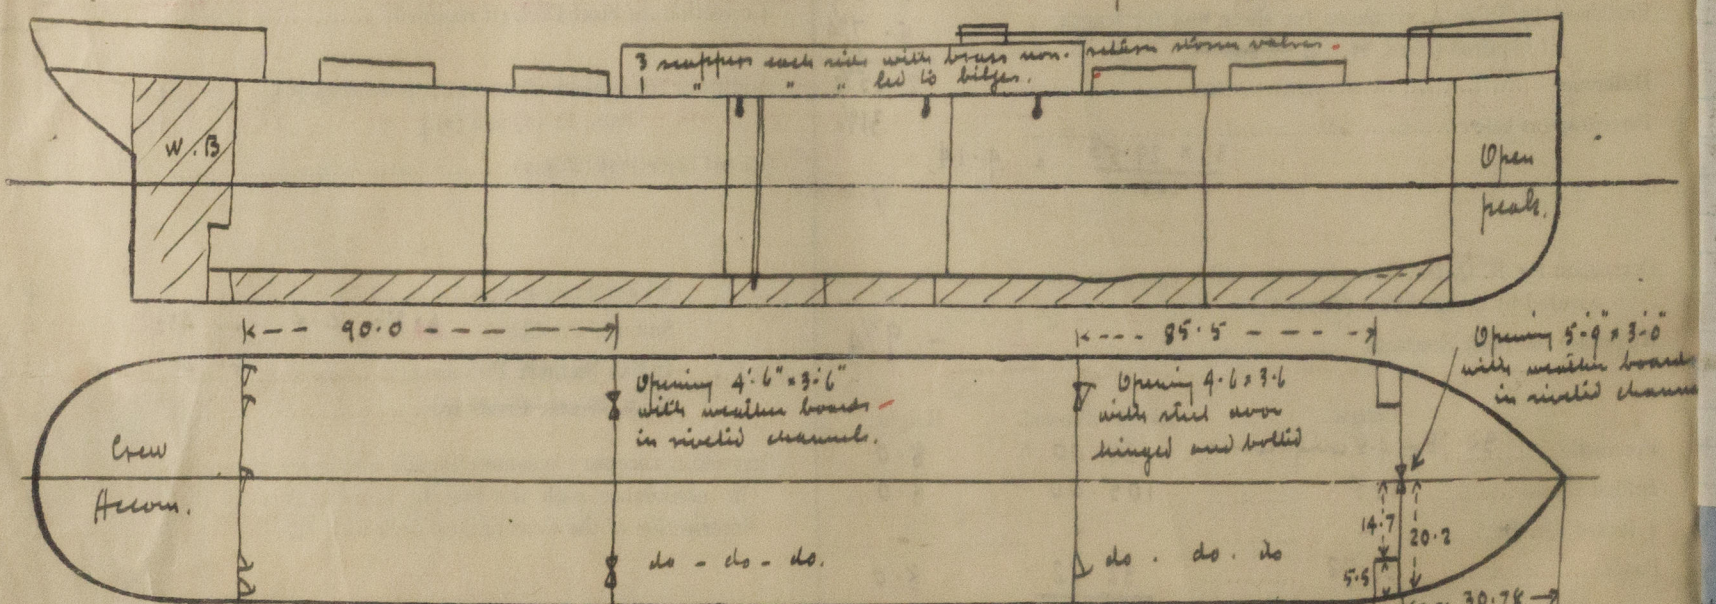 3 scuppers each side with brass non-return storm valves.
1 " " " led to bilges.
W.B
Open
peak.
90.0
85.5
Opening 5'-9" x 3'-0"
with weather boards
in riveted channels
Opening 4'-6" x 3'-6"
with weather boards
in riveted channels.
Opening 4.6 x 3.6
with steel door
hinged and bolted
Crew
Accom.
14.7
20.2
do - do - do.
do . do . do
5.5
30.78